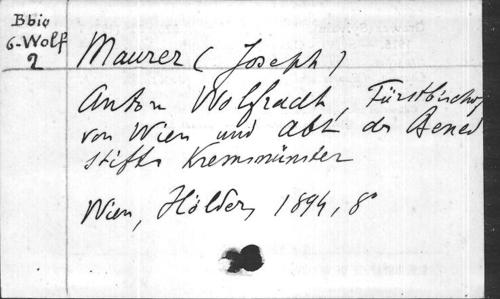 Bbio
6-Wolf
2
Maurer (Joseph)
Anton Wolfradt, Fürstbischof
von Wien und Abt des Bened
Stifts Kremsmünster
Wien, Hölder, 1894, 8°